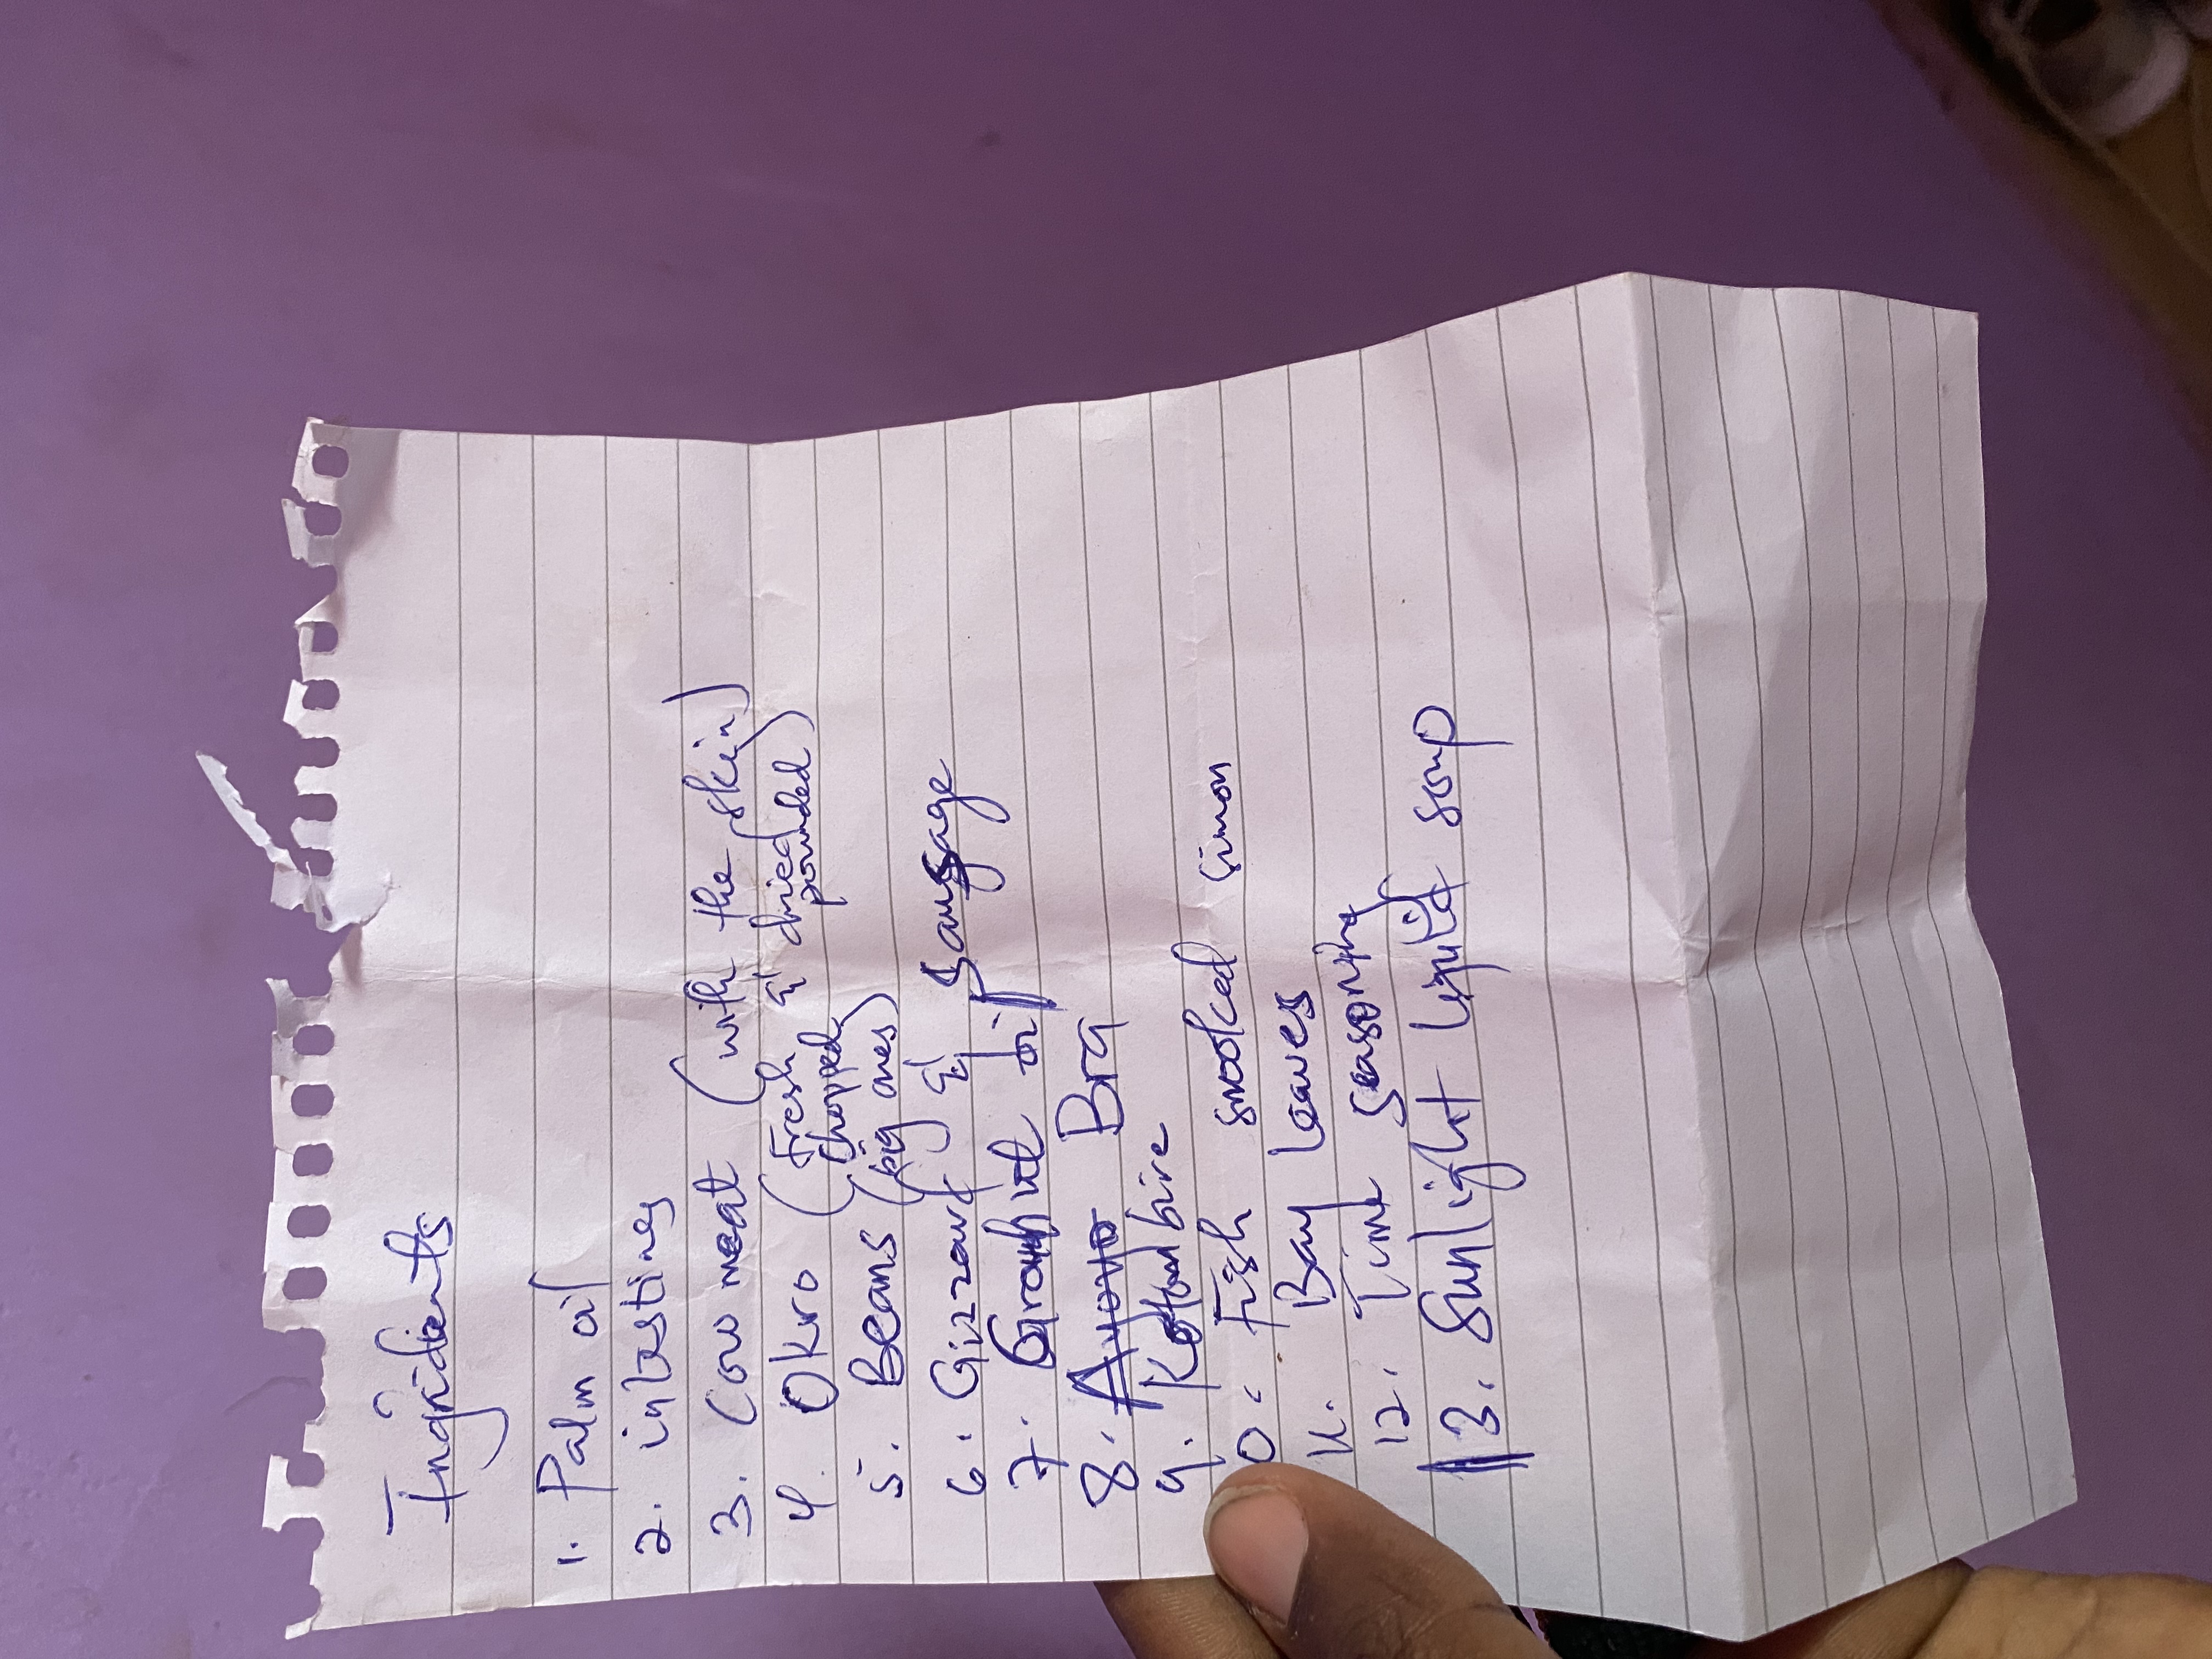 Ingridients
1. Palm oil
2. intestines
3. Cow meat (with the skin)
4. Okro (Fresh & dried
chopped pounded)
5. Beans (big ones)
6. Gizzard & Sausage
7. Grounut oil
8. Ayoyo Bra
9. Kotombire
0. Fish smooked simon
11. Bay Leaves
12. Time seasoning
13. Sunlight liquid soup